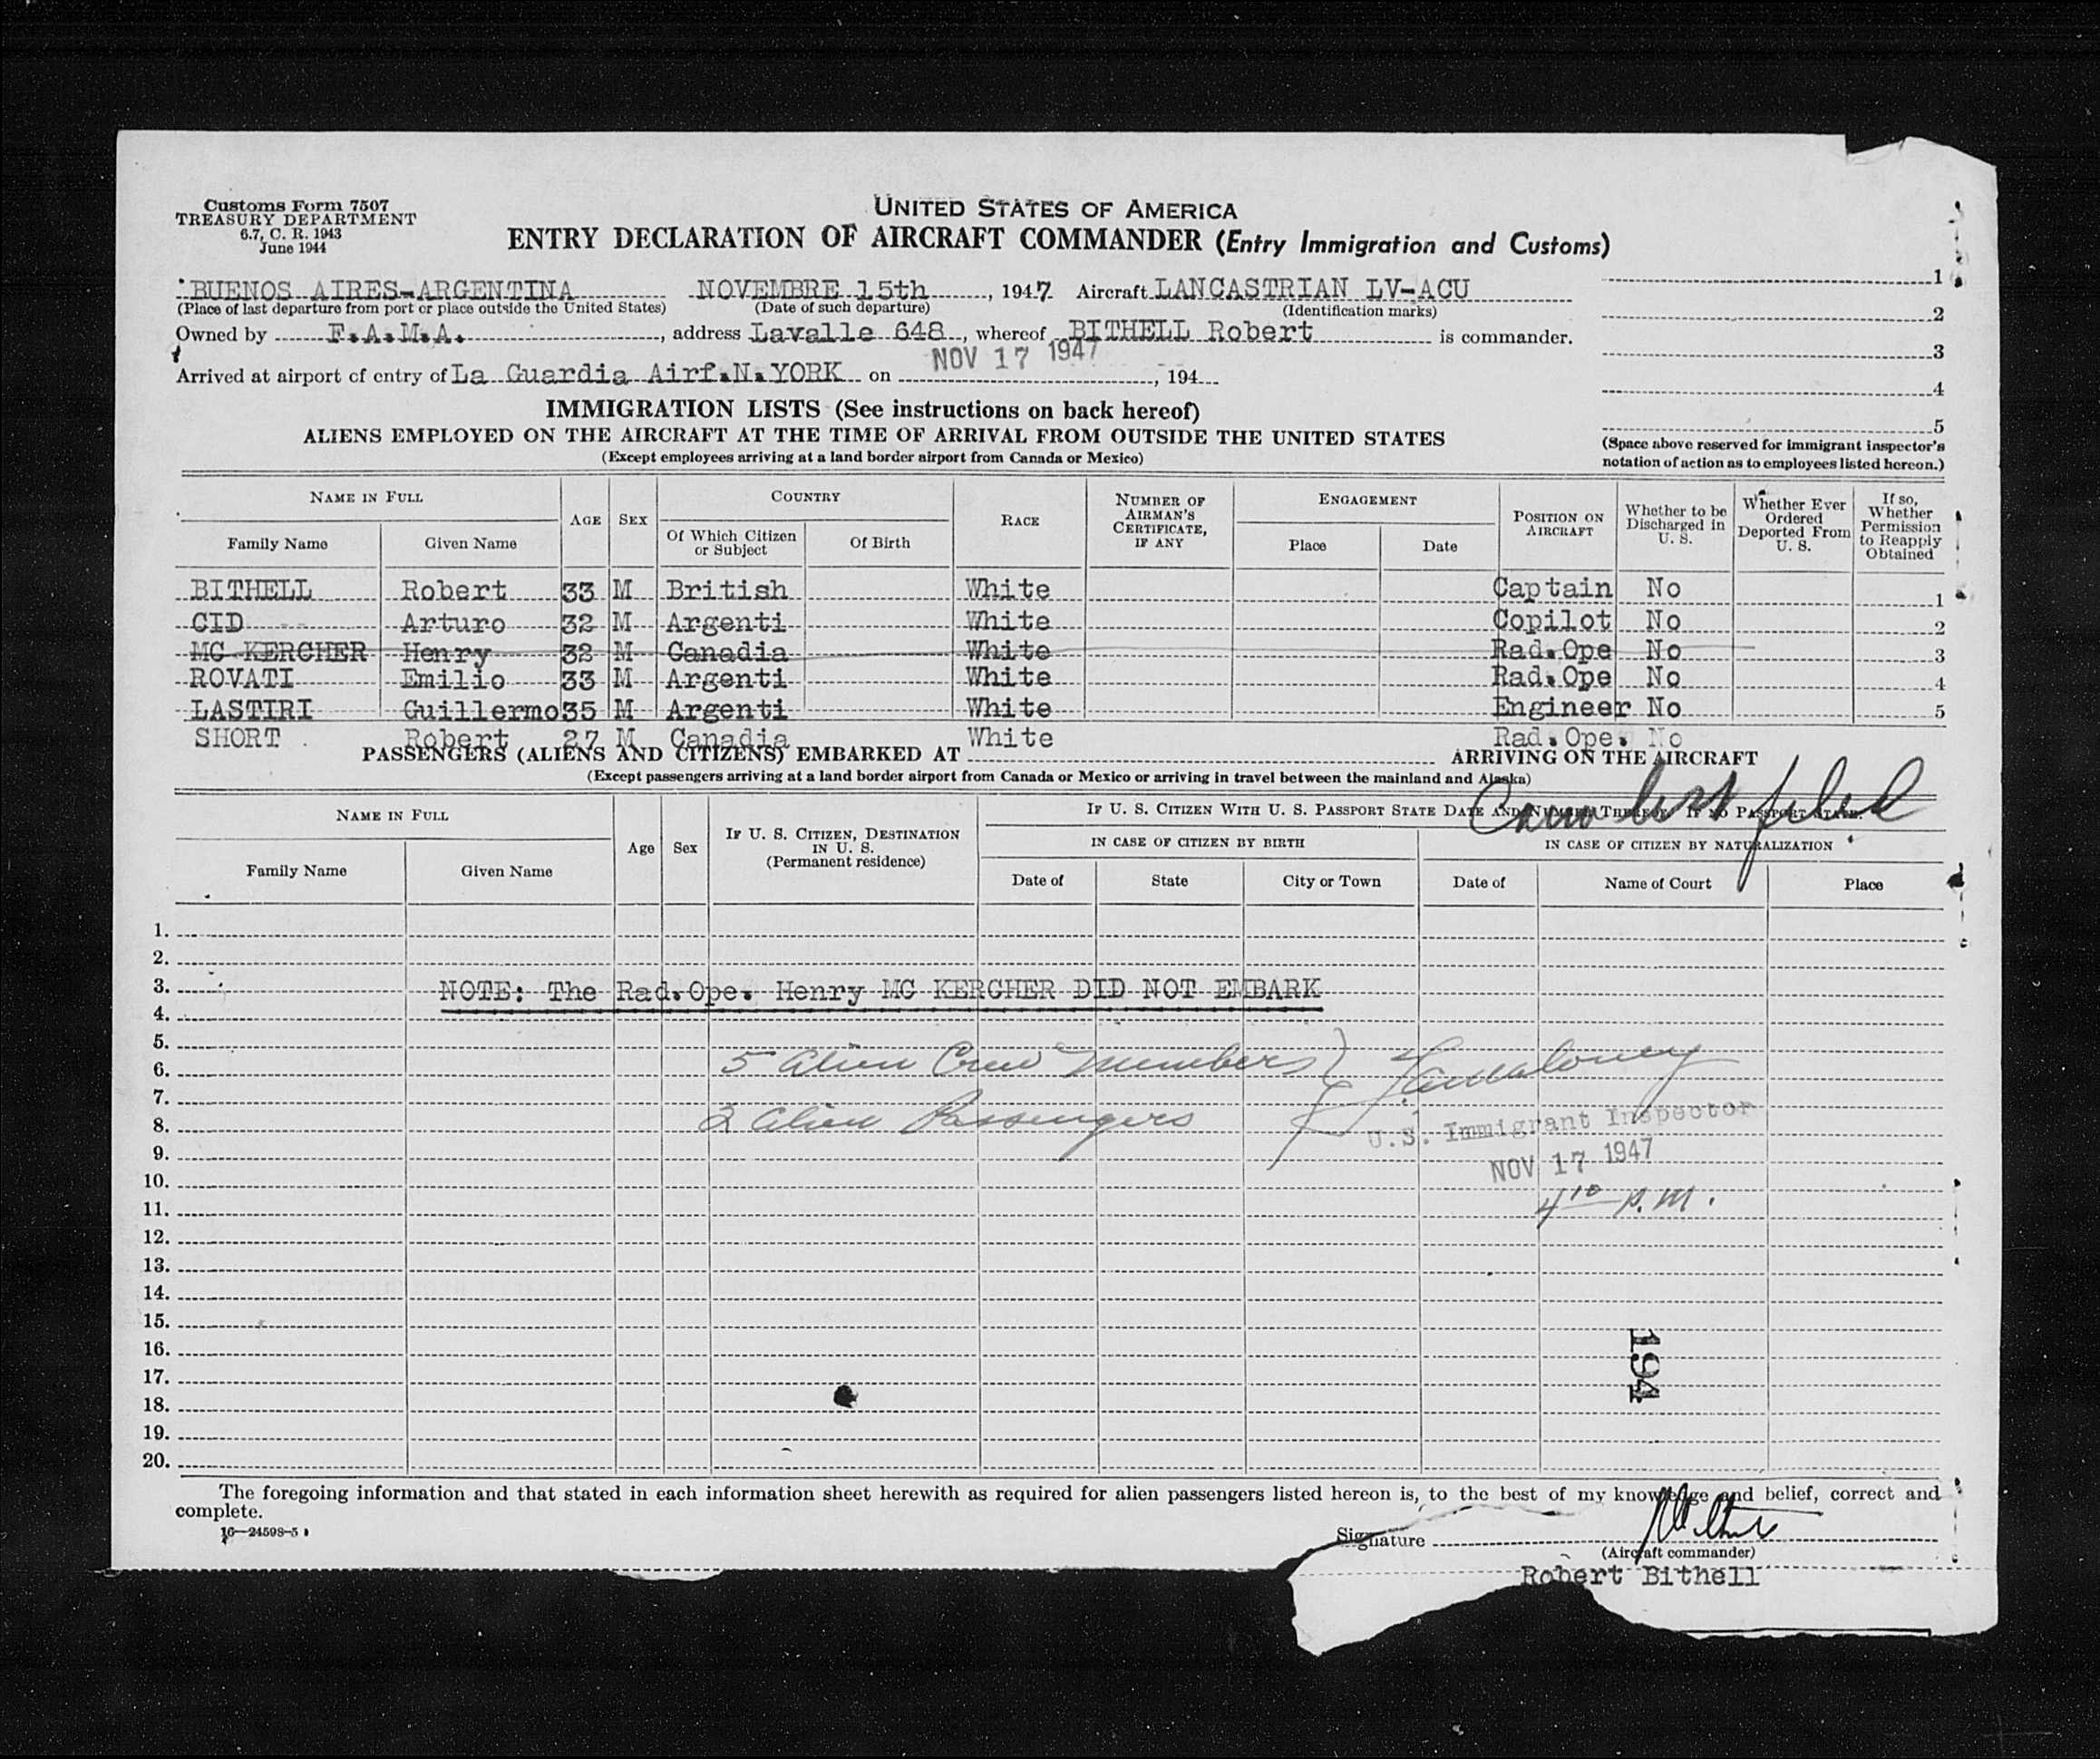 Customs Form 7507
TREASURY DEPARTMENT
6.7, C. R. 1943
June 1944
UNITED STATES OF AMERICA
ENTRY DECLARATION OF AIRCRAFT COMMANDER (Entry Immigration and Customs)
BUENOS AIRES-ARGENTINA NOVEMBRE 15th, 1947 Aircraft LANCASTRIAN LV-ACU
(Place of last departure from port or place outside the United States) (Date of such departure) (Identification marks)
Owned by F.A.M.A., address Lavalle 648, whereof BITHELL Robert is commander.
Arrived at airport of entry of La Guardia Airf.N.YORK on NOV 17 1947, 194
1
2
3
4
5
(Space above reserved for immigrant inspector's notation of action as to employees listed hereon.)
IMMIGRATION LISTS (See instructions on back hereof)
ALIENS EMPLOYED ON THE AIRCRAFT AT THE TIME OF ARRIVAL FROM OUTSIDE THE UNITED STATES
(Except employees arriving at a land border airport from Canada or Mexico)
NAME IN FULL AGE SEX COUNTRY RACE NUMBER OF AIRMAN'S CERTIFICATE, IF ANY ENGAGEMENT POSITION ON AIRCRAFT Whether to be Discharged in U. S. Whether Ever Ordered Deported From U. S. If so, Whether Permission to Reapply Obtained
Family Name Given Name Of Which Citizen or Subject Of Birth Place Date
BITHELL Robert 33 M British White Captain No 1
CID Arturo 32 M Argenti White Copilot No 2
MC KERCHER Henry 32 M Canadia White Rad.Ope No 3
ROVATI Emilio 33 M Argenti White Rad.Ope No 4
LASTIRI Guillermo 35 M Argenti White Engineer No 5
SHORT Robert 27 M Canadia White Rad.Ope. No
PASSENGERS (ALIENS AND CITIZENS) EMBARKED AT ARRIVING ON THE AIRCRAFT
(Except passengers arriving at a land border airport from Canada or Mexico or arriving in travel between the mainland and Alaska)
list filed
NAME IN FULL Age Sex IF U. S. CITIZEN, DESTINATION IN U. S. (Permanent residence) IF U. S. CITIZEN WITH U. S. PASSPORT STATE DATE AND NUMBER THEREOF. IF NO PASSPORT STATE:
IN CASE OF CITIZEN BY BIRTH IN CASE OF CITIZEN BY NATURALIZATION
Family Name Given Name Date of State City or Town Date of Name of Court Place
1.
2.
3. NOTE: The Rad.Ope. Henry MC KERCHER DID NOT EMBARK
4.
5.
6. 5 Alien Crew Members
7.
8. 2 Alien Passengers
U.S. Immigrant Inspector
9.
NOV 17 1947
10.
11. 4 10 P.M.
12.
13.
14.
15.
16.
194
17.
18.
19.
20.
The foregoing information and that stated in each information sheet herewith as required for alien passengers listed hereon is, to the best of my knowledge and belief, correct and
complete.
16—24598-5
Signature
(Aircraft commander)
Robert Bithell